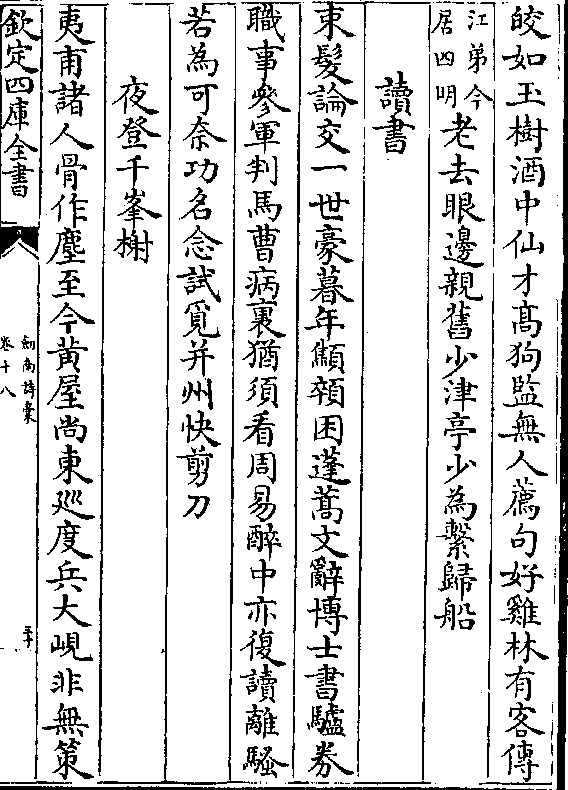 皎如玉樹酒中仙才髙狗監無人薦句好雞林有客傳
江弟今
居四明
老去眼邊親舊少津亭少為繫歸船
讀書
束髮論交一世豪暮年顦顇困蓬蒿文辭博士書驢券
職事參軍判馬曹病裏猶須看周易醉中亦復讀離騷
若為可奈功名念試覓并州快剪刀
夜登千峯榭
夷甫諸人骨作塵至今黄屋尚東廵度兵大峴非無策
欽定四庫全書
劍南詩藁
卷十八